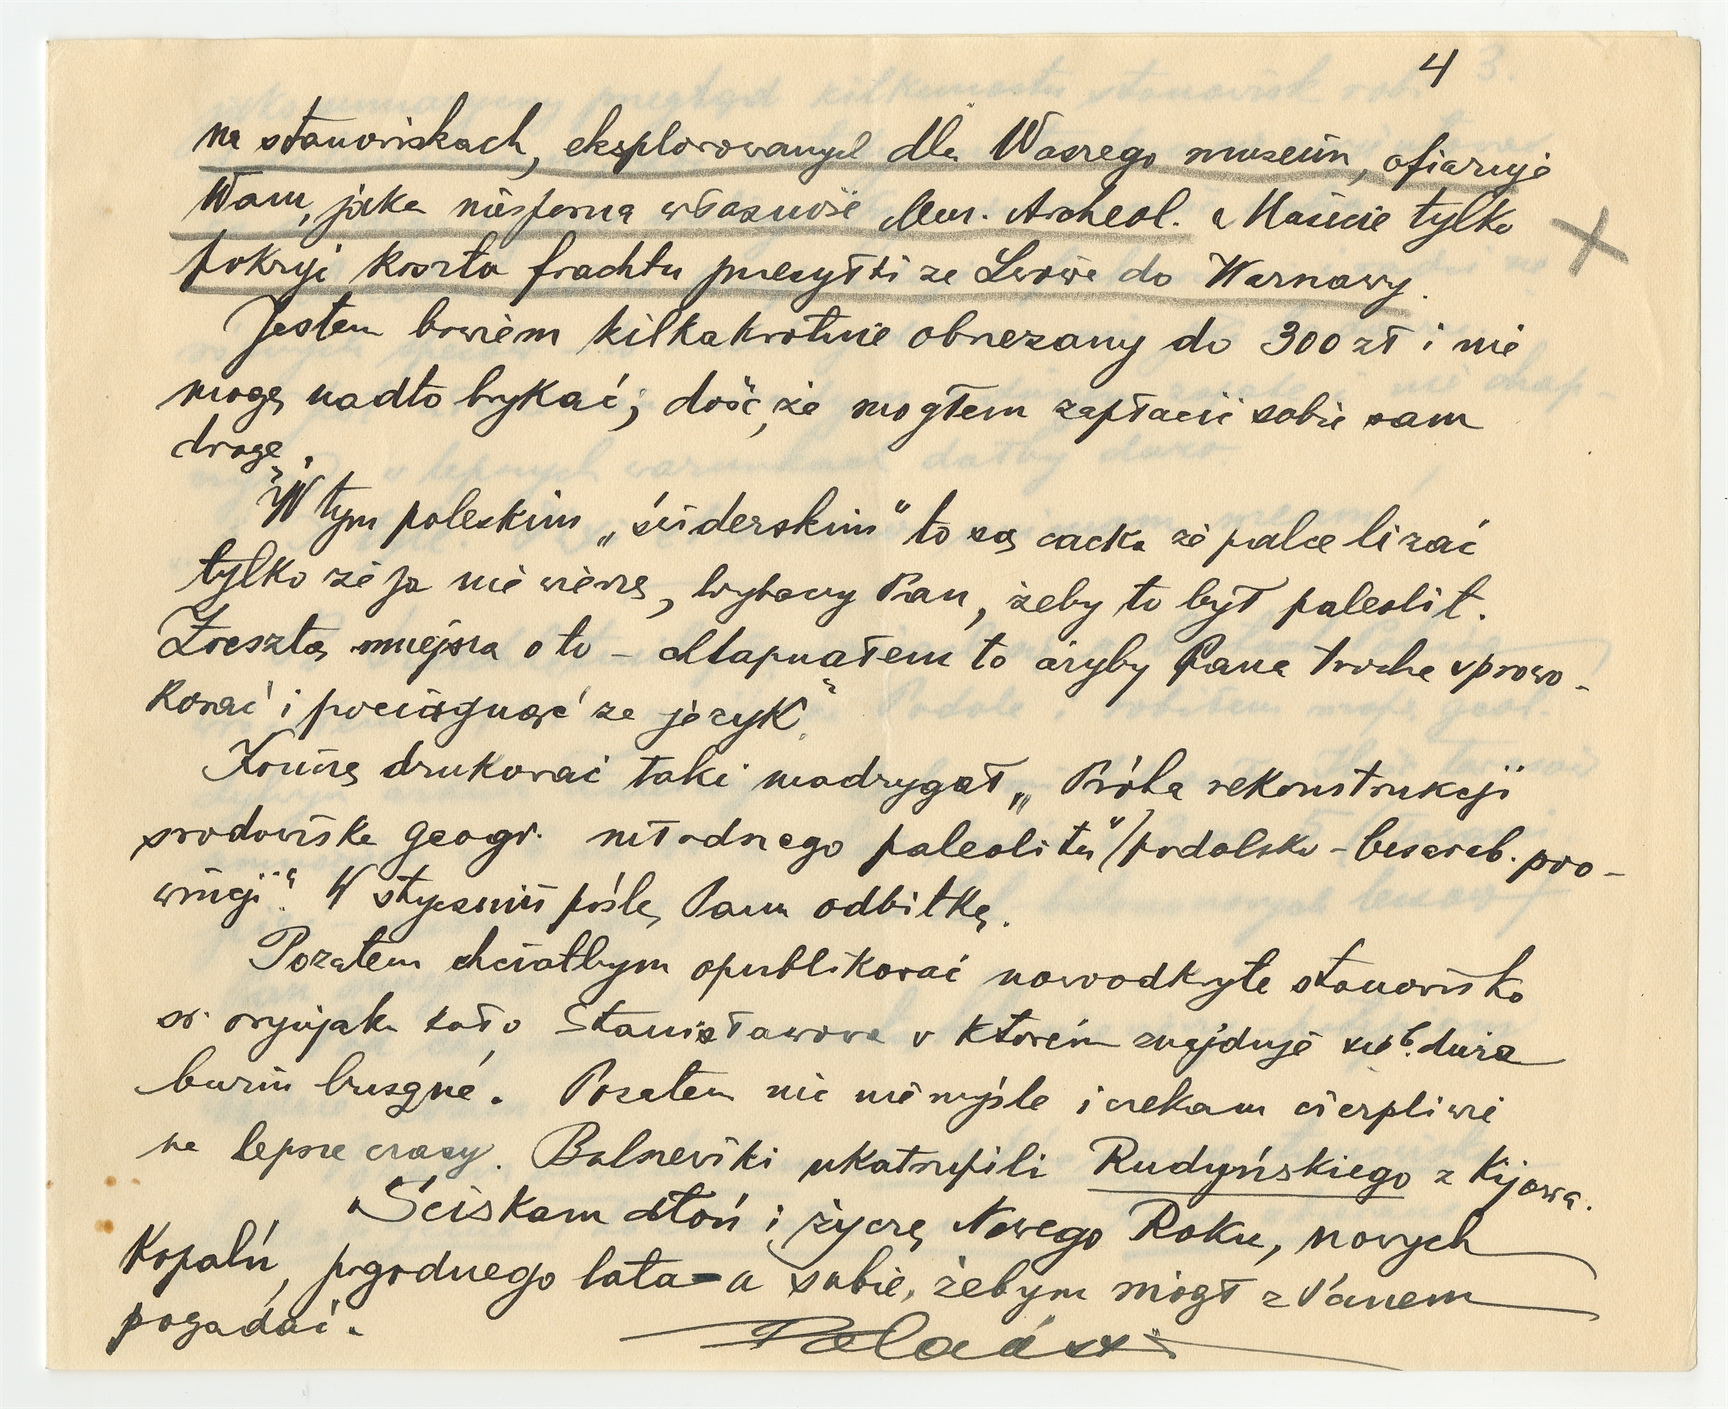 4
na stanowiskach, eksplorowanych dla Waszego muzeum, ofiaruję
Wam, jako niesporną własność Muz. Archeol. a Macie tylko
pokryć koszta frachtu przesyłki ze Lwowa do Warszawy.
Jestem bowiem kilkakrotnie obrzezany do 300 zł i nie
mogę nadto brykać; dość, że mogłem zapłacić sobie sam
drogę.
W tym poleskim „świderskim" to są cacka że palce lizać
tylko że ja nie wierzę, wybaczy Pan, żeby to był paleolit.
Zresztą mniejsza o to – chlapnąłem to ażyby Pana trochę sprowo-
kować i pociągnąć za język.
Kończę drukować taki madrygał „Próba rekonstrukcji
środowiska geogr. młodszego paleolitu"/podolsko-besarab. pro-
wincji". W styczniu poślę Panu odbitkę.
Pozatem chciałbym opublikować nowoodkryte stanowisko
st. oryniak. koło Stanisławowa w którem znajduje się b. duża
burin busqué. Pozatem nic nie myślę i czekam cierpliwie
na lepsze czasy. Bolszewiki ukatrupili Rudyńskiego z Kijowa.
Ściskam dłoń i życzę Nowego Roku, nowych
kopalń, pogodnego lata – a sobie, żebym mógł z Panem
pogadać.